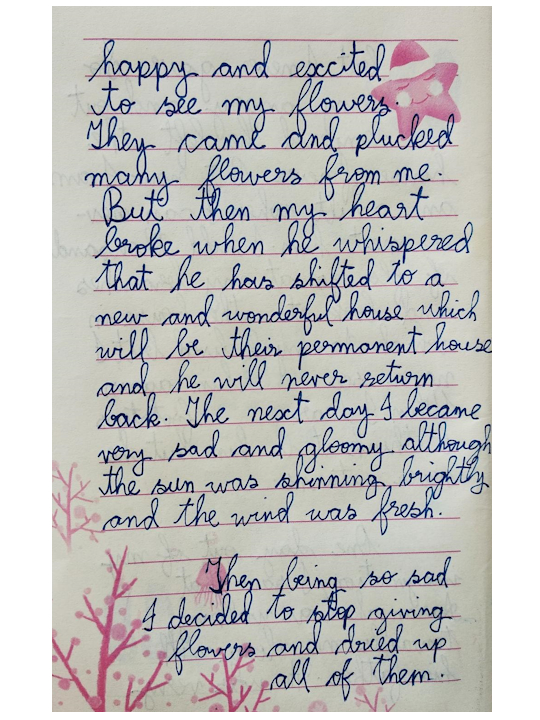 happy and excited
to see my flowers.
They came and plucked
many flowers from me.
But then my heart
broke when he whispered
that he has shifted to a
new and wonderful house which
will be their permanent house
and he will never return
back. The next day I became
very sad and gloomy although
the sun was shinning brightly
and the wind was fresh.
Then being so sad
I decided to stop giving
flowers and dried up
all of them.